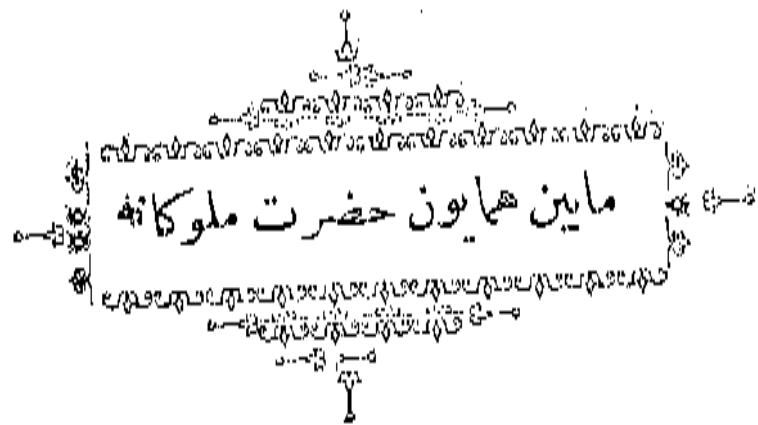 مابين همايون حضرت ملوكانه